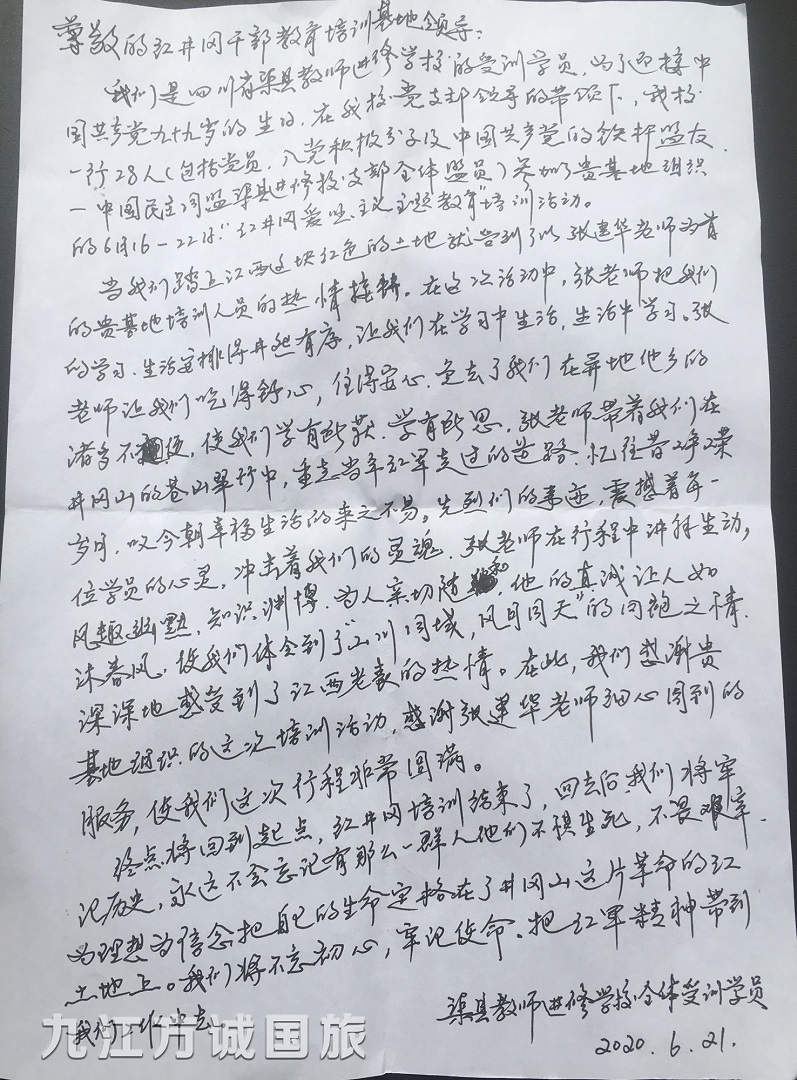 尊敬的红井冈干部教育培训基地领导：
我们是四川省渠县教师进修学校的受训学员，为了迎接中
国共产党九十九岁的生日，在我校党支部领导的带领下，我校
一行28人（包括党员，入党积极分子及中国共产党的铁杆盟友
—中国民主同盟渠县进修校支部全体盟员）参加了贵基地组织
的6月16—22日“红井冈爱国主义主题教育”培训活动。
当我们踏上江西这块红色的土地就得到了以张建华老师为首
的贵基地培训人员的热情接待。在这次活动中，张老师把我们
的学习、生活安排得井然有序，让我们在学习中生活，生活中学习。张
老师让我们吃得舒心，住得安心，免去了我们在异地他乡的
诸多不便，使我们学有所获，学有所思，张老师带着我们在
井冈山的苍山翠竹中，重走当年红军走过的道路，忆往昔峥嵘
岁月，叹今朝幸福生活的来之不易。先烈们的事迹，震撼着每一
位学员的心灵，冲击着我们的灵魂，张老师在行程中讲解生动，
风趣幽默，知识渊博，为人亲切随和，他的真诚让人如
沐春风，使我们体会到了“山川同域，风月同天”的同胞之情
深深地感受到了江西老表的热情。在此，我们感谢贵
基地组织的这次培训活动，感谢张建华老师细心周到的
服务，使我们这次行程非常圆满。
终点将回到起点，红井冈培训结束了，回去后我们将牢
记历史，永远不会忘记有那么一群人他们不惧生死，不畏艰辛，
为理想为信念把自己的生命定格在了井冈山这片革命的红
土地上。我们将不忘初心，牢记使命，把红军精神带到
我们工作中去。
渠县教师进修学校全体受训学员
2020.6.21.
九江方诚国旅